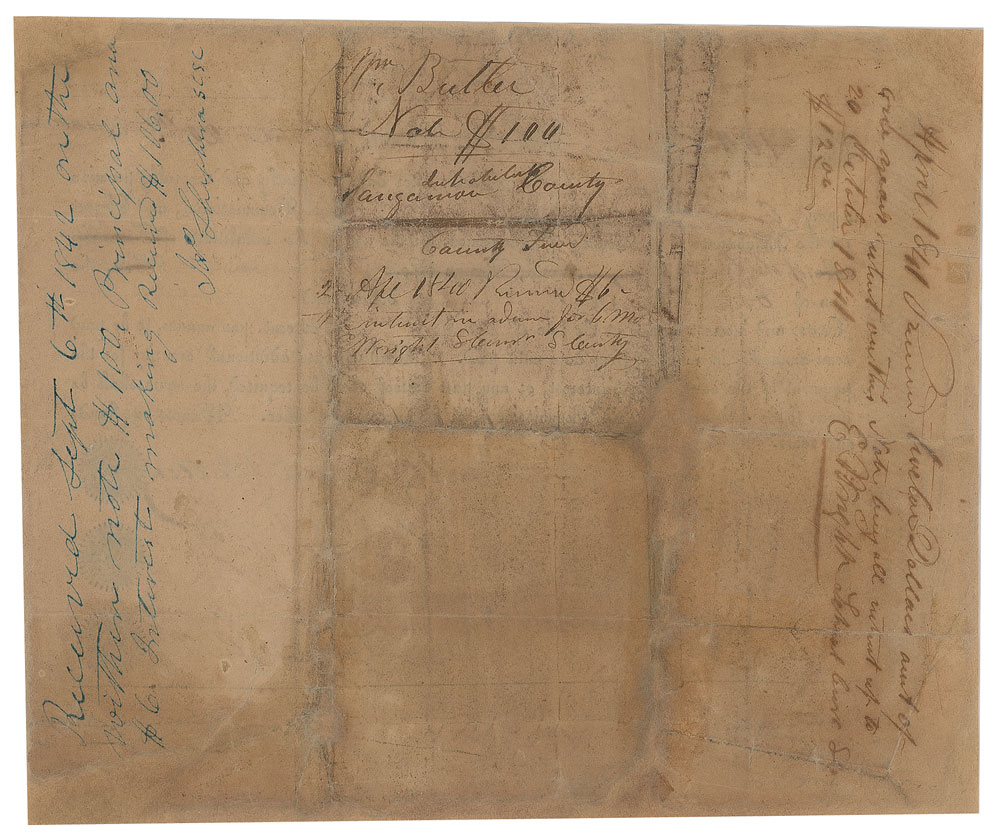 Wm Butler
Note $100
Inhabitants
Sangamon County
County Fund
2 Apl 1840 Received $6
interest in advance for 6. Mo
Wright S County
Received Sept 6th 184 on the
within note $100 Principal and
$6 Interest making Received $116,00
April 1841 Received twelve Dollars amt of
one years interest on this Note being all interest up to
20 1841 E Wright School
$12.00